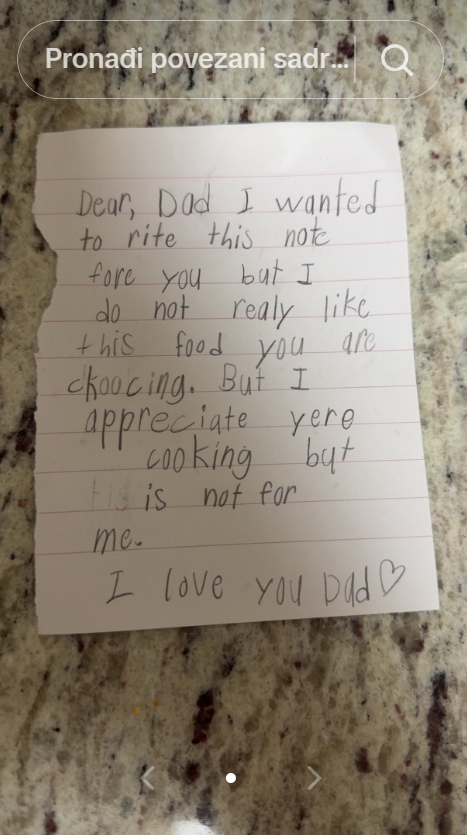 Pronađi povezani sadr...
Dear, Dad I wanted
to rite this note
fore you but I
do not realy like
this food you are
ckoocing. But I
appreciate yere
cooking but
tis is not for
me.
I love you Dad♡